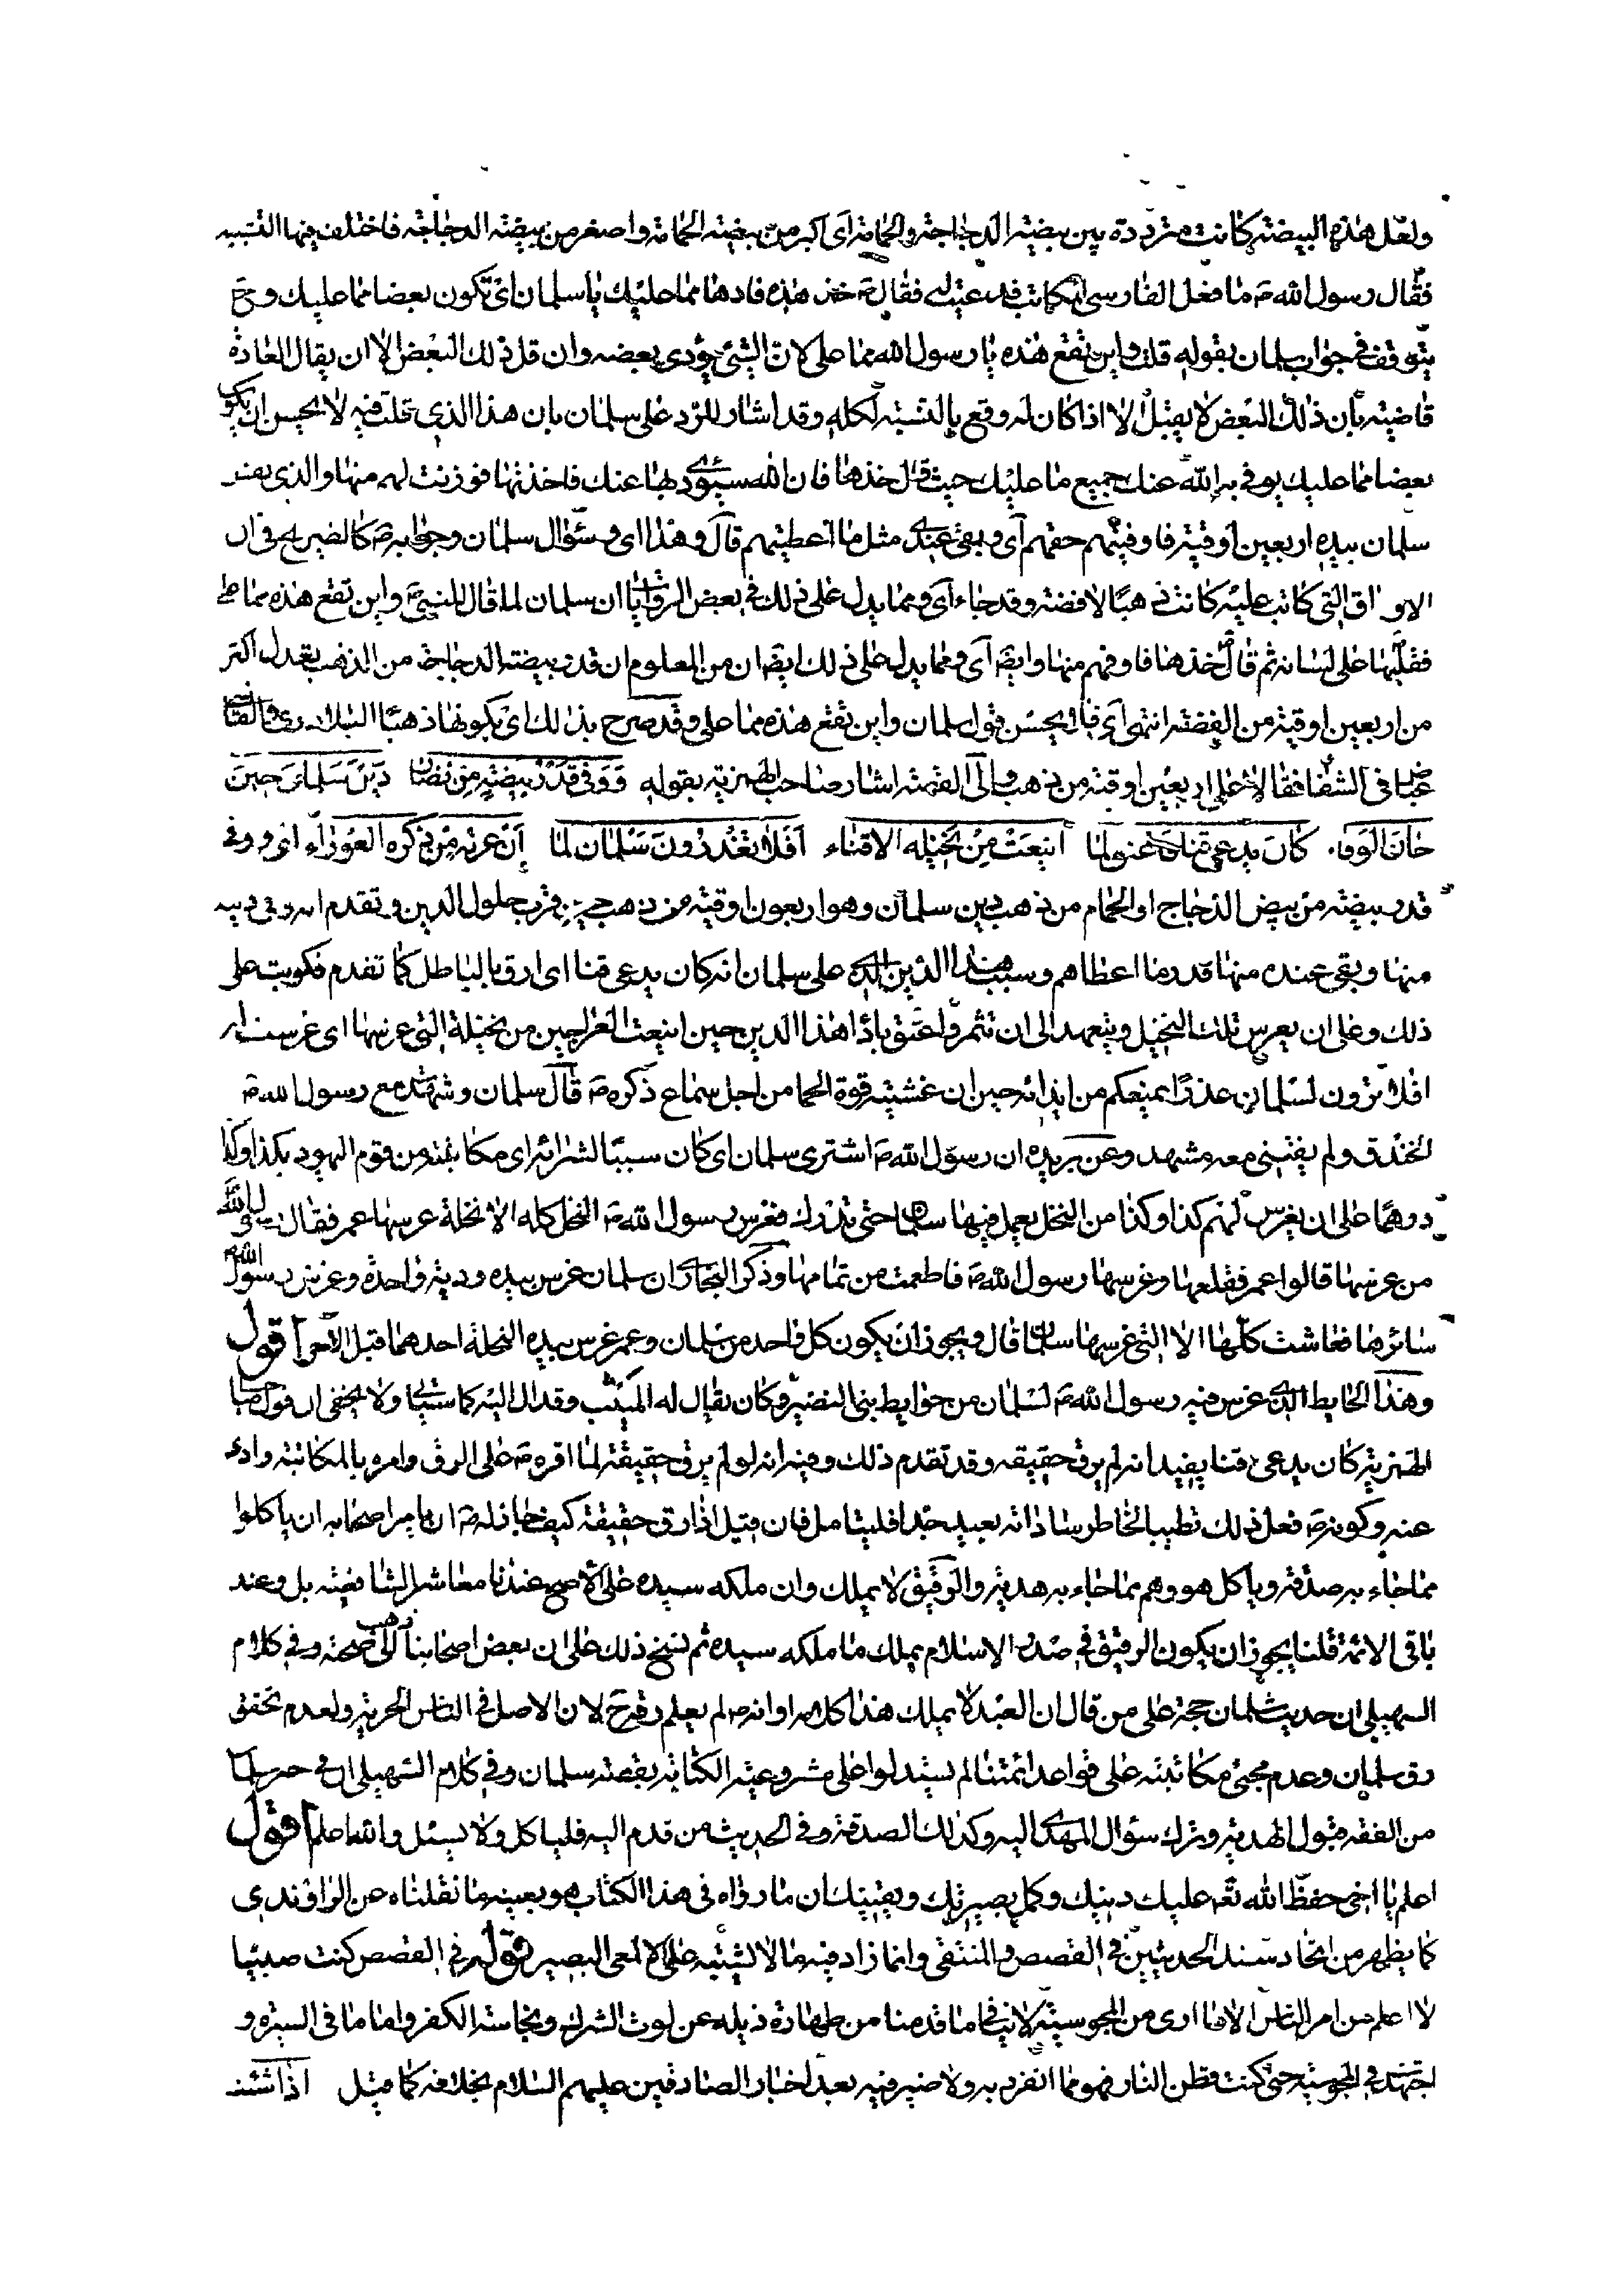 ولعل هذه البيضة كانت مترددة بين بيضة الدجاجة والحمامة اى اكبر من بيضة الحمامة واصغر من بيضة الدجاجة فاختلف فيها التشبيه
فقال رسول الله ص ما فعل الفارسى المكاتب فدعيت له فقال ص خذ هذه فادها مما عليك يا سلمان اى تكون بعضا مما عليك وح
يتوقف فى جواب سلمان بقوله قلت واين تقع هذه يا رسول الله مما على لان الشئ يؤدى بعضه وان قل ذلك البعض الا ان يقال العادة
قاضية بان ذلك البعض لا يقبل الا اذا كان له وقع بالنسبة لكله وقد اشار للرد على سلمان بان هذا الذى قلت فيه لا يحسن ان يكون
بعضا مما عليك يوفى به الله عنك جميع ما عليك حيث قال خذها فان الله سيؤدى بها عنك فاخذتها فوزنت لهم منها والذى نفس
سلمان بيده اربعين اوقية فاوفيتهم حقهم اى وبقى عندى مثل ما اعطيتهم قال وهذا اى سؤال سلمان وجوابه ص كالصريح فى ان
الاواق التى كاتب عليه كانت ذهبا لا فضة وقد جاء اى ومما يدل على ذلك فى بعض الروايات ان سلمان لما قال للنبى ص واين تقع هذه مما على
فقلبها على لسانه ثم قال خذها فاوفهم منها وايضا اى ومما يدل على ذلك ايضا ان من المعلوم ان قدر بيضة الدجاجة من الذهب يعدل اكثر
من اربعين اوقية من الفضة انتهى اى فلا يحسن قول سلمان واين تقع هذه مما على وقد صرح بذلك اى بكونها ذهبا البلاذرى والقاضى
عياض فى الشفا فقالا على اربعين اوقية من ذهب والى القصة اشار صاحب الهمزية بقوله ووفى قدر بيضة من نضار دين سلمان حين
حان الوفاء كان يدعى قنا فاعتق لما اينعت من نخيله الاقناء افلا تعذرون سلمان لما ان عرته من ذكره العرواء اى ووفى
قدر بيضة من بيض الدجاج او الحمام من ذهب دين سلمان وهو اربعون اوقية من ذهب حين قرب حلول الدين وتقدم انه وفى دينه
منها وبقى عنده منها قدر ما اعطاهم وسبب هذا الدين الذى على سلمان انه كان يدعى قنا اى ارق بالباطل كما تقدم فكوتب على
ذلك وعلى ان يغرس تلك النخيل ويتعهدها الى ان تثمر واعتق باداء هذا الدين حين اينعت العراجين من نخيله التى غرسها اى غرست له
افلا ترون لسلمان عذرا يمنعكم من ايذائه حين ان غشيته قوة الحما من اجل سماع ذكره ص قال سلمان وشهدت مع رسول الله ص
الخندق ولم يفتنى معه مشهد وعن بريدة ان رسول الله ص اشترى سلمان اى كان سببا لشرائه اى مكاتبته من قوم اليهود بكذا وكذا
درهما على ان يغرس لهم كذا وكذا من النخل يعمل فيها سلمان حتى تدرك فغرس رسول الله ص النخل كله الا نخلة غرسها عمر فقال رسول الله
من غرسها قالوا عمر فقلعها وغرسها رسول الله ص فاطعمت من عامها وذكر البخارى ان سلمان غرس بيده ودية واحدة وغرس رسول الله ص
سائرها فعاشت كلها الا التى غرسها سلمان قال ويجوز ان يكون كل واحد من سلمان وعمر غرس بيده النخلة احدهما قبل الاخر اقول
وهذا الحايط الذى غرس فيه رسول الله ص لسلمان من حوايط بنى النضير وكان يقال له الميثب وقد آل اليه كما سياتى ولا يخفى ان قول صاحب
الهمزية كان يدعى قنا يفيد انه لم يرق حقيقة وقد تقدم ذلك وفيه انه لو لم يرق حقيقة لما اقره ص على الرق وامره بالمكاتبة وادى
عنه وكونه ص فعل ذلك تطييبا لخاطر ساداته بعيد جدا فليتامل فان قيل اذا رق حقيقة كيف جاز له ص ان يامر اصحابه ان ياكلوا
مما جاء به صدقة وياكل هو وهم مما جاء به هدية والرقيق لا يملك وان ملكه سيده على الاصح عندنا معاشر الشافعية بل وعند
باقى الائمة قلنا يجوز ان يكون الرقيق فى صدر الاسلام يملك ما ملكه سيده ثم نسخ ذلك على ان بعض اصحابنا ذهب الى صحته وفى كلام
السهيلى ان حديث سلمان حجة على من قال ان العبد لا يملك هذا كلامه او انه ص لم يعلم رقه ح لان الاصل فى الناس الحرية ولعدم تحقق
رق سلمان وعدم مجئ مكاتبته على قواعد ائمتنا لم يستدلوا على مشروعية الكتابة بقصة سلمان وفى كلام السهيلى ان فى خبر سلمان
من الفقه قبول الهدية وترك سؤال المهدى اليه وكذلك الصدقة وفى الحديث من قدم اليه فلياكل ولا يسئل والله اعلم اقول
اعلم يا اخى حفظ الله تعه عليك دينك وكمل بصيرتك ويقينك ان ما رواه فى هذا الكتاب هو بعينه ما نقلناه عن الراوندى
كما يظهر من اتحاد سند الحديثين فى القصص والمنتقى وانما زاد فيه ما لا يشتبه على الالمعى البصير فقوله فى القصص كنت صبيا
لا اعلم من امر الناس الا ما ارى من المجوسية لا ينافى ما قدمنا من طهارة ذيله عن لوث الشرك ونجاسة الكفر واما ما فى السيرة و
اجتهدت فى المجوسية حتى كنت قطن النار فهو مما انفرد به ولا ضير فيه بعد اخبار الصادقين عليهم السلام بخلافه كما قيل اذا شئت